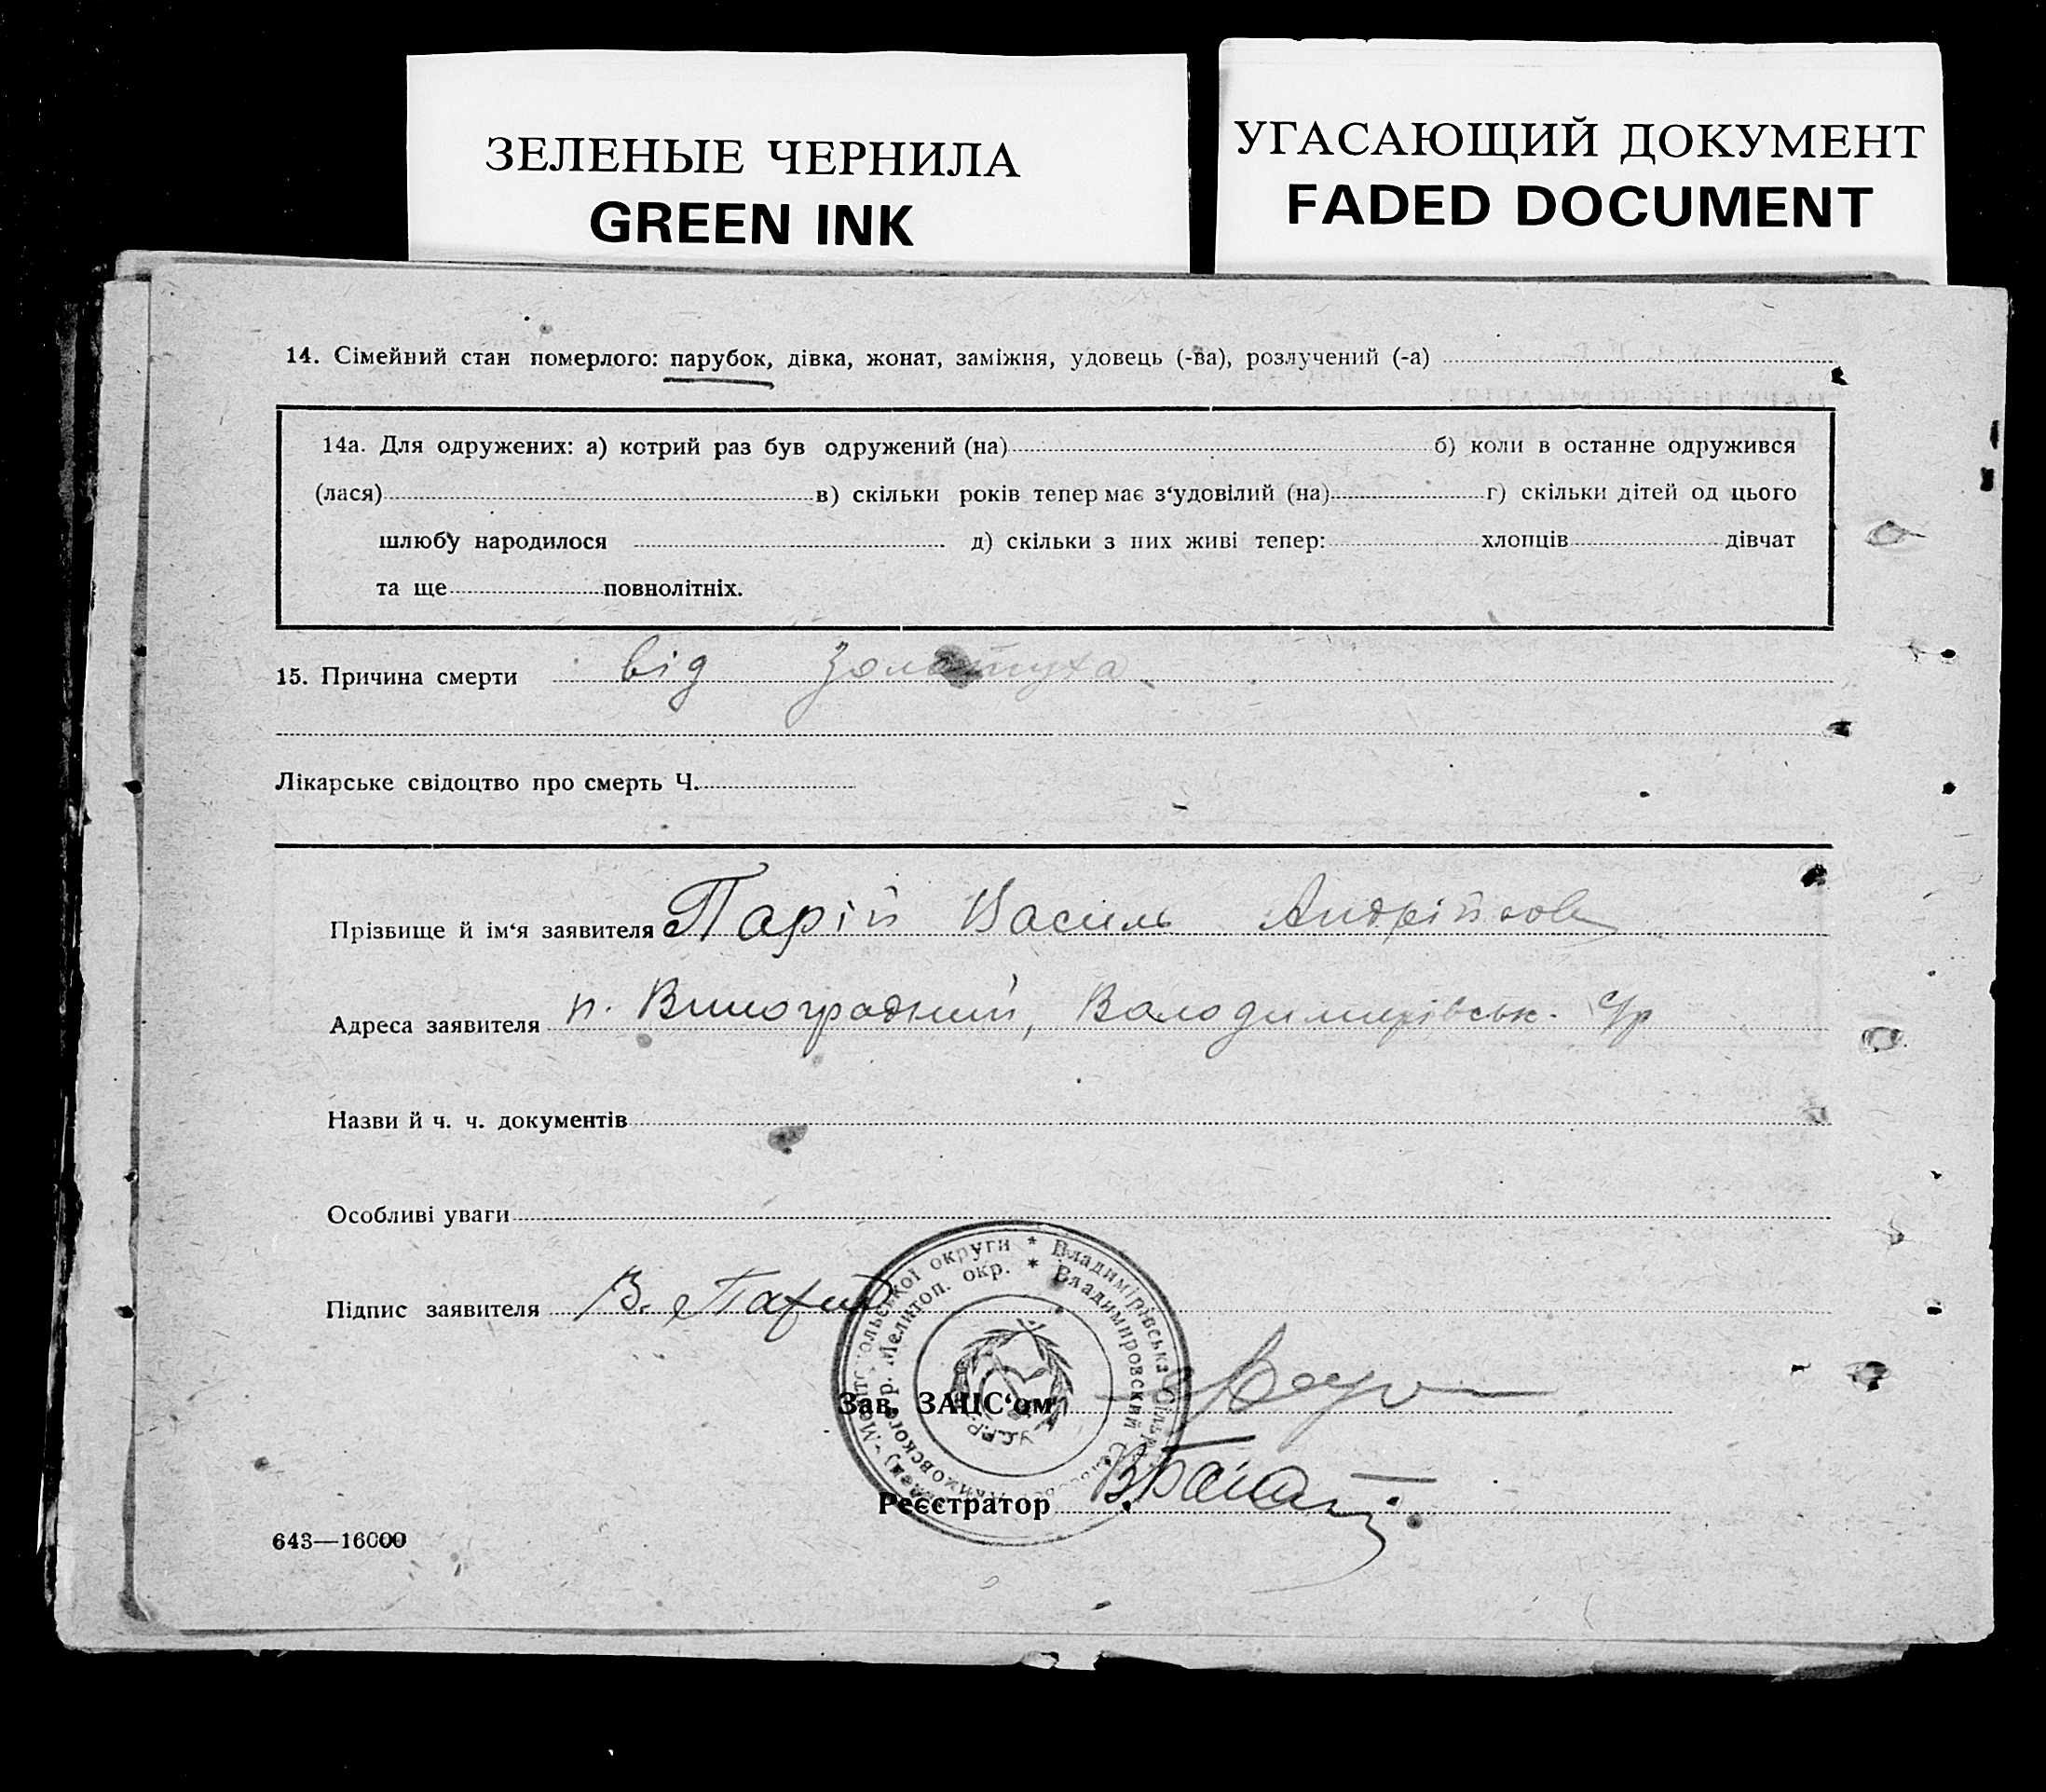 ЗЕЛЕНЫЕ ЧЕРНИЛА
GREEN INK
УГАСАЮЩИЙ ДОКУМЕНТ
FADED DOCUMENT
14. Сімейний стан померлого: парубок, дівка, жонат, заміжня, удовець (-ва), розлучений (-а)
14а. Для одружених: а) котрий раз був одружений (на) б) коли в останне одружився
(лася) в) скільки років тепер має з‘удовілий (на) г) скільки дітей од цього
шлюбу народилося д) скільки з них живі тепер: хлопців дівчат
та ще повнолітніх.
15. Причина смерти від золотуха
Лікарське свідоцтво про смерть Ч.
Прізвище й ім‘я заявителя Парій Василь
Адреса заявителя п. Виноградний, Володимирівськ. с/р
Назви й ч. ч. документів
Особливі уваги
Підпис заявителя В. Парий
округи * Владимірівська
Мелитоп. окр. * Владимировский
У.С.Р.Р.
Зав. ЗАЦС‘ом
Реєстратор
643—16000